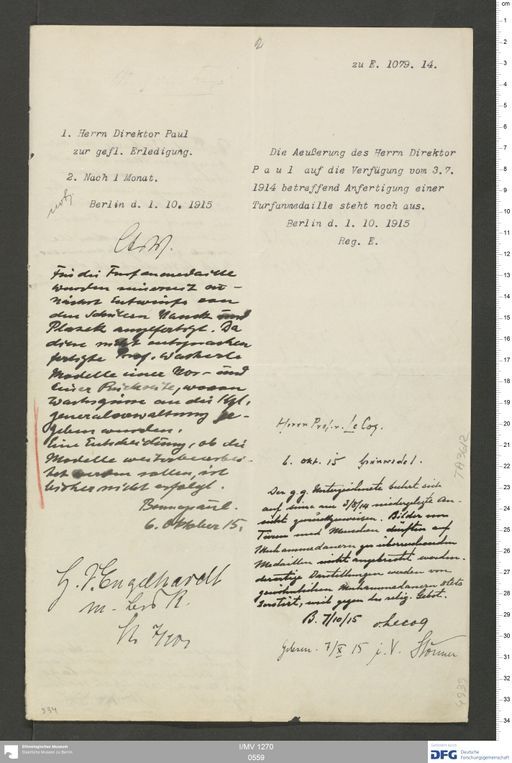 2
zu E. 1079. 14.
1. Herrn Direktor Paul
zur gefl. Erledigung.
2. Nach 1 Monat.
notz
Berlin d. 1. 10. 1915
Die Aeußerung des Herrn Direktor
Paul auf die Verfügung vom 3.7.
1914 betreffend Anfertigung einer
Turfanmedaille steht noch aus.
Berlin d. 1. 10. 1915
Reg. E.
Für die Turfanmedaille
wurden seinerzeit zu-
nächst Entwürfe von
den Schülern Hauck und
Plaschk angefertigt. Da
diese nicht entsprachen
fertigte Prof. Wackerle
Modelle einer Vor- und
einer Rückseite, wovon
Wachsgüsse an die Kgl.
Generalverwaltung ge-
geben wurden.
Eine Entscheidung, ob die
Modelle weiterbearbei-
tet werden sollen, ist
bisher nicht erfolgt.
Bruno Paul.
6. Oktober 15.
H. F. Engelhardt
Herrn Profr. Le Coq.
6. Okt. 15 Grünwedel.
Der g. g. Unterzeichnete beehrt sich
auf seine am 3/8/14 niedergelegte An-
sicht zurückzuweisen. Bilder von
Tieren und Menschen dürften auf
Muhammedanern zu überweisenden
Medaillen nicht angebracht werden.
derartige Darstellungen werden von
gewöhnlichen Muhammedanern stets
zerstört, weil gegen das relig. Gebot.
B. 7/10/15 v. Lecoq
Gelesen. 7/X 15 i. V. Stönner
TA 3612
4939
334
Ethnologisches Museum
Staatliche Museen zu Berlin
I/MV 1270
0559
Gefördert durch
DFG
Deutsche
Forschungsgemeinschaft